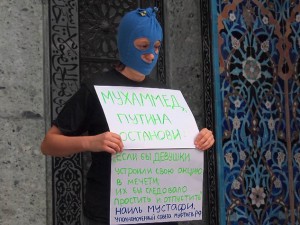 МУХАММЕД,
ПУТИНА
ОСТАНОВИ!
ЕСЛИ БЫ ДЕВУШКИ
УСТРОИЛИ СВОЮ АКЦИЮ
В МЕЧЕТИ,
ИХ БЫ СЛЕДОВАЛО
ПРОСТИТЬ И ОТПУСТИТЬ
НАИЛЬ МУСТАФИН,
УПОЛНОМОЧЕННЫЙ СОВЕТА МУФТИЕВ РФ